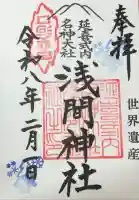 奉拝
世界遺産
延喜式内
名神大社
浅間神社
令和八年二月一日